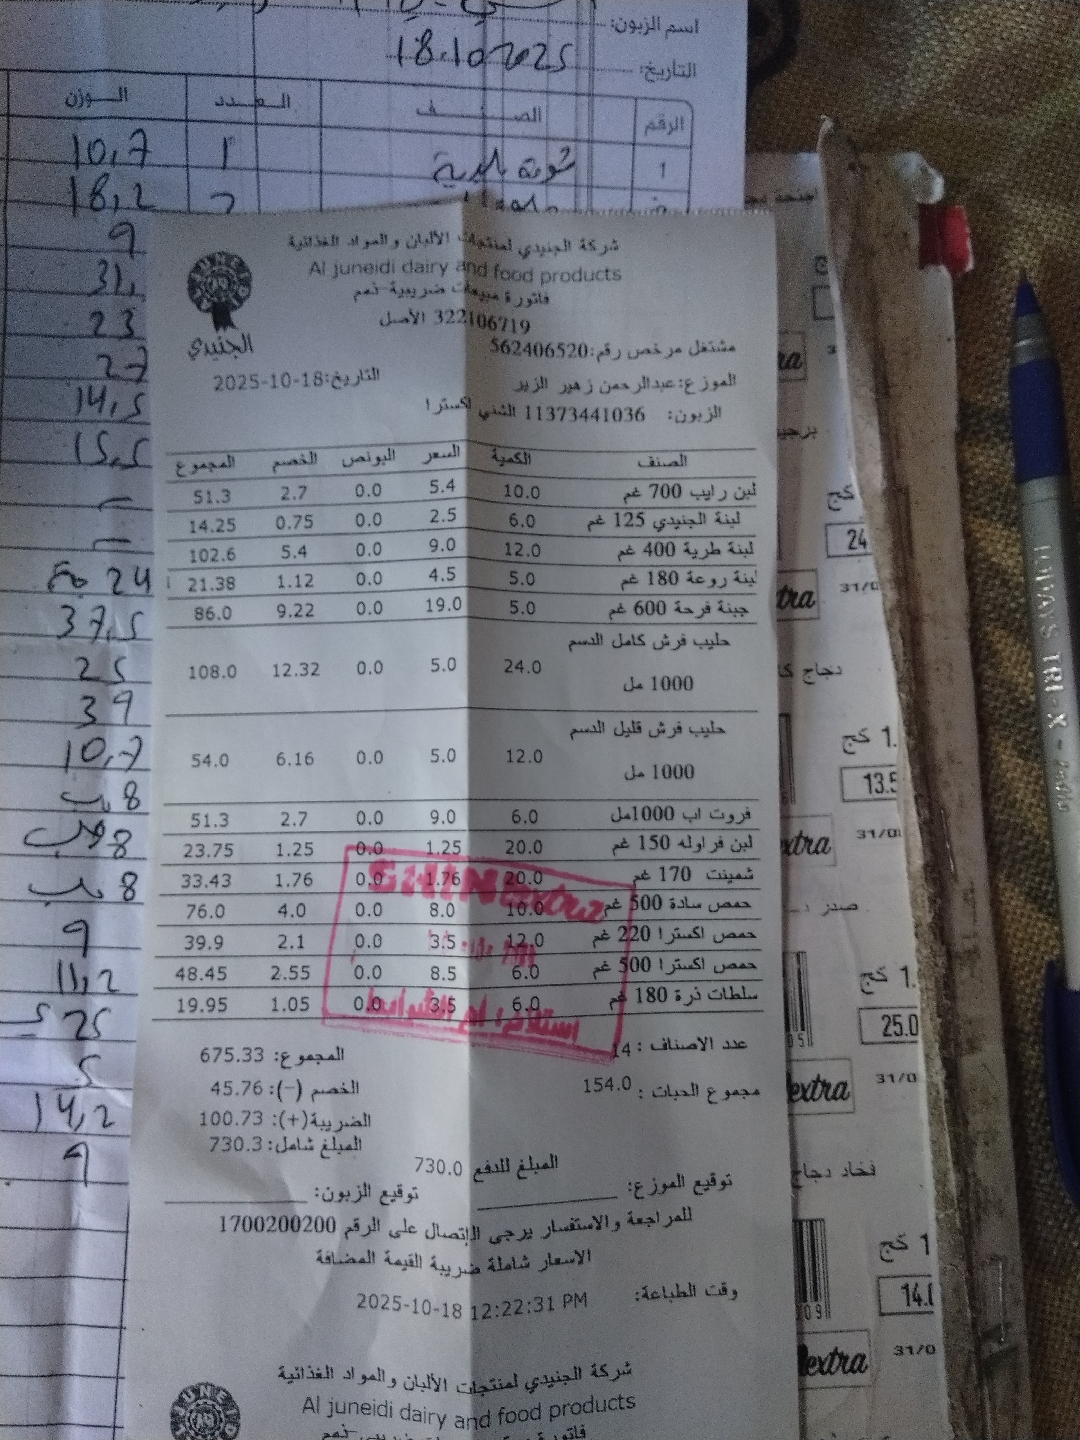 اسم الزبون:
التاريخ: 18.10.2025
الرقم الصنف العدد الوزن
1 1 10,7
18,2
9
31,
23
27
14,5
15,5
24
37,5
25
39
10,7
8
8
8
9
11,2
25
5
14,2
9
شركة الجنيدي لمنتجات الألبان والمواد الغذائية
Al juneidi dairy and food products
فاتورة مبيعات ضريبية-ذمم
322106719 الأصل
الجنيدي
مشتغل مرخص رقم:562406520
الموزع:عبدالرحمن زهير الزير التاريخ:2025-10-18
الزبون: 11373441036 الشني اكسترا
الصنف الكمية السعر البونص الخصم المجموع
لبن رايب 700 غم 10.0 5.4 0.0 2.7 51.3
لبنة الجنيدي 125 غم 6.0 2.5 0.0 0.75 14.25
لبنة طرية 400 غم 12.0 9.0 0.0 5.4 102.6
لبنة روعة 180 غم 5.0 4.5 0.0 1.12 21.38
جبنة فرحة 600 غم 5.0 19.0 0.0 9.22 86.0
حليب فرش كامل الدسم
1000 مل 24.0 5.0 0.0 12.32 108.0
حليب فرش قليل الدسم
1000 مل 12.0 5.0 0.0 6.16 54.0
فروت اب 1000مل 6.0 9.0 0.0 2.7 51.3
لبن فراوله 150 غم 20.0 1.25 0.0 1.25 23.75
شمينت 170 غم 20.0 1.76 0.0 1.76 33.43
حمص سادة 500 غم 10.0 8.0 0.0 4.0 76.0
حمص اكسترا 220 غم 12.0 3.5 0.0 2.1 39.9
حمص اكسترا 500 غم 6.0 8.5 0.0 2.55 48.45
سلطات ذرة 180 غم 6.0 3.5 0.0 1.05 19.95
عدد الاصناف : 14 المجموع: 675.33
مجموع الحبات : 154.0 الخصم (-): 45.76
الضريبة(+): 100.73
المبلغ شامل: 730.3
المبلغ للدفع 730.0
توقيع الموزع: توقيع الزبون:
للمراجعة والاستفسار يرجى الإتصال على الرقم 1700200200
الاسعار شاملة ضريبة القيمة المضافة
وقت الطباعة: 2025-10-18 12:22:31 PM
شركة الجنيدي لمنتجات الألبان والمواد الغذائية
Al juneidi dairy and food products
كج
24
31/0
دجاج
1. كج
13.5
extra
31/0
صدر
1. كج
25.0
extra
31/0
فخاد دجاج
1 كج
14.0
extra
31/0